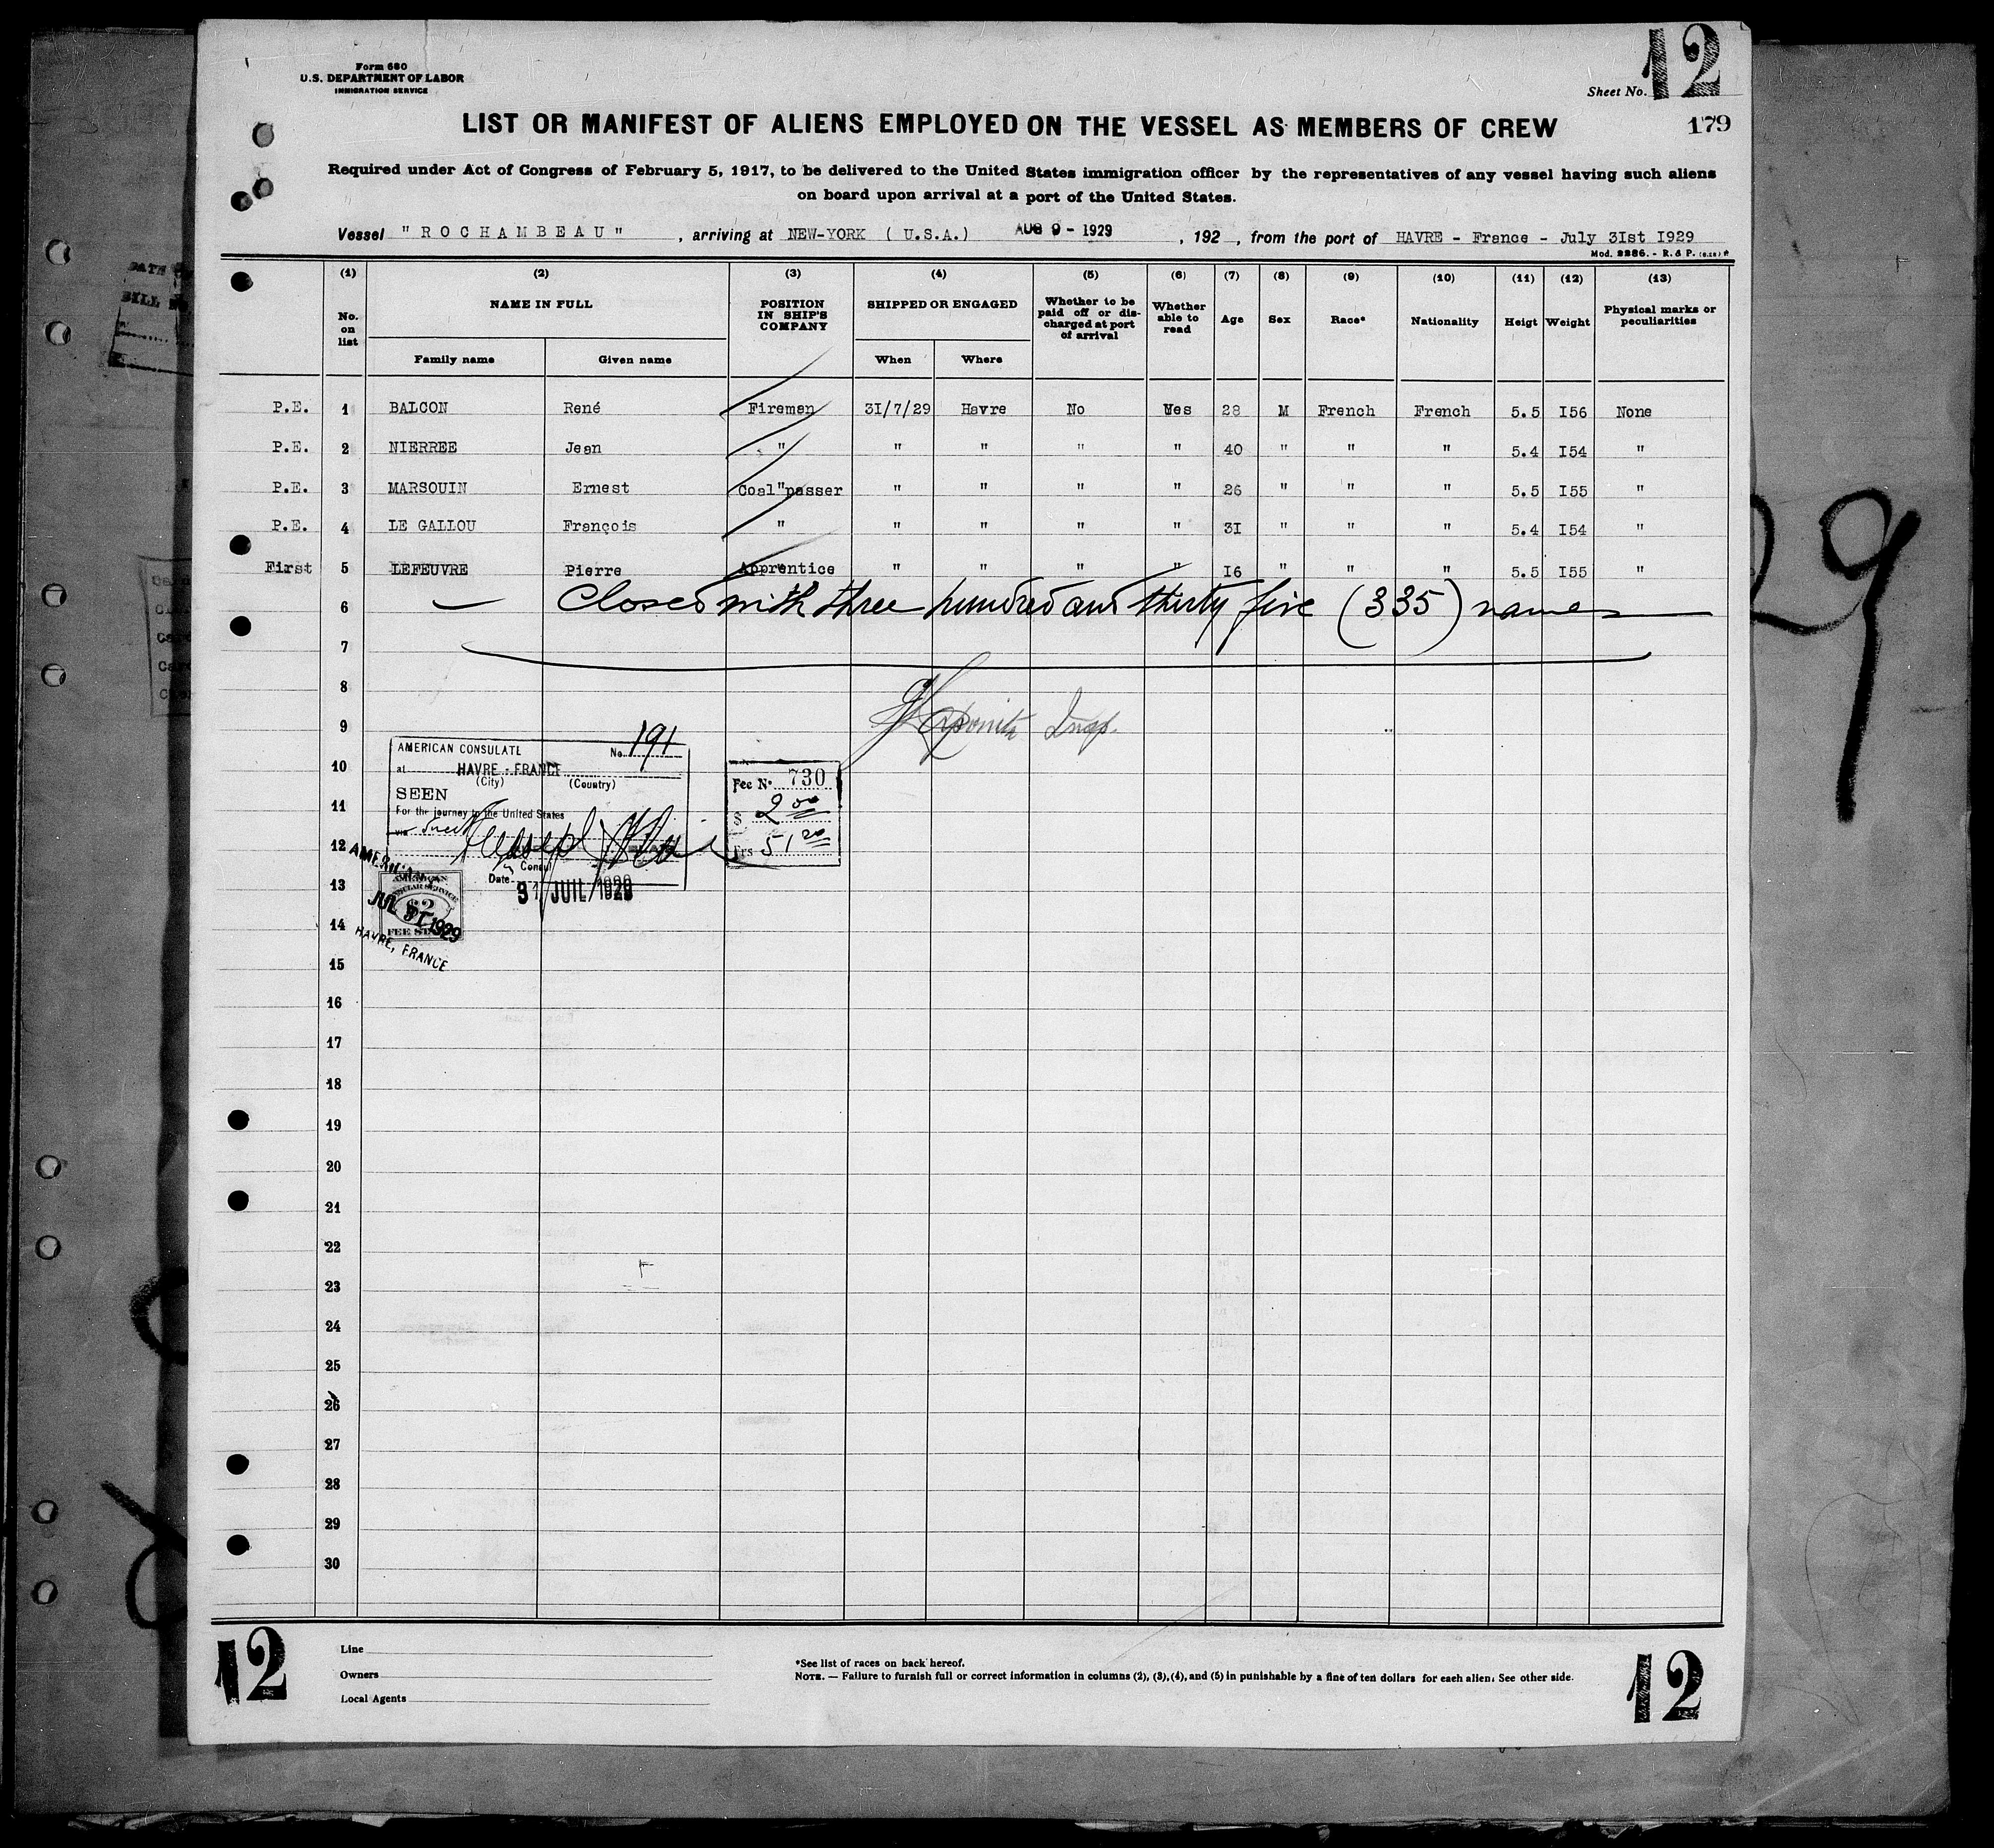 Form 680
U.S. DEPARTMENT OF LABOR
IMMIGRATION SERVICE
Sheet No. 12
LIST OR MANIFEST OF ALIENS EMPLOYED ON THE VESSEL AS MEMBERS OF CREW
179
Required under Act of Congress of February 5, 1917, to be delivered to the United States immigration officer by the representatives of any vessel having such aliens
on board upon arrival at a port of the United States.
Vessel "ROCHAMBEAU", arriving at NEW-YORK (U.S.A.) AUG 9 - 1929, 192 , from the port of HAVRE - France - July 3Ist I929
Mod. 2286. - R. & P.
(1) (2) (3) (4) (5) (6) (7) (8) (9) (10) (11) (12) (13)
No. on list NAME IN FULL POSITION IN SHIP'S COMPANY SHIPPED OR ENGAGED Whether to be paid off or discharged at port of arrival Whether able to read Age Sex Race* Nationality Heigt Weight Physical marks or peculiarities
Family name Given name When Where
P.E. 1 BALCON René Fireman 3I/7/29 Havre No Yes 28 M French French 5.5 I56 None
P.E. 2 NIERREE Jean " " " " " 40 " " " 5.4 I54 "
P.E. 3 MARSOUIN Ernest Coal passer " " " " 26 " " " 5.5 I55 "
P.E. 4 LE GALLOU François " " " " " 3I " " " 5.4 I54 "
First 5 LEFEUVRE Pierre Apprentice " " " " I6 " " " 5.5 I55 "
6 Closed with three hundred and thirty five (335) names
7
8
9 Insp.
AMERICAN CONSULATE No. 191
10 at HAVRE - FRANCE
(City) (Country)
SEEN
11 For the journey to the United States
via direct
12
Consul
Date 31 JUIL 1929
Fee No. 730
$ 2 00
Frs 51 20
AMERICAN
CONSULAR SERVICE
$2
FEE STAMP
JUL 31 1929
HAVRE, FRANCE
13
14
15
16
17
18
19
20
21
22
23
24
25
26
27
28
29
30
12
Line
Owners
Local Agents
*See list of races on back hereof.
NOTE. — Failure to furnish full or correct information in columns (2), (3), (4), and (5) in punishable by a fine of ten dollars for each alien. See other side.
12